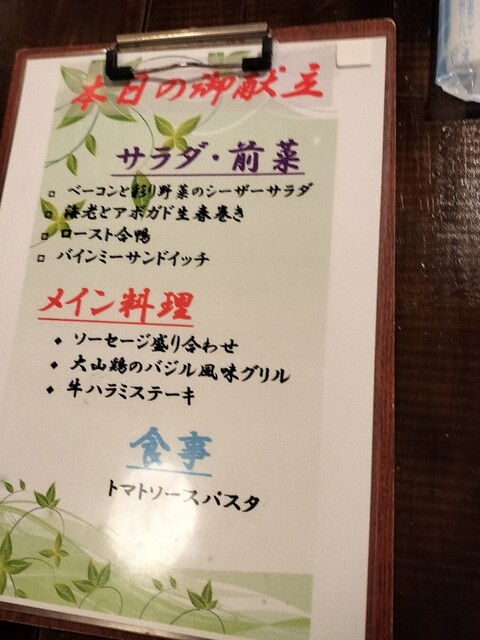 本日の御献立
サラダ・前菜
ベーコンと彩り野菜のシーザーサラダ
海老とアボガド生春巻き
ロースト合鴨
バインミーサンドイッチ
メイン料理
ソーセージ盛り合わせ
大山鶏のバジル風味グリル
牛ハラミステーキ
食事
トマトソースパスタ